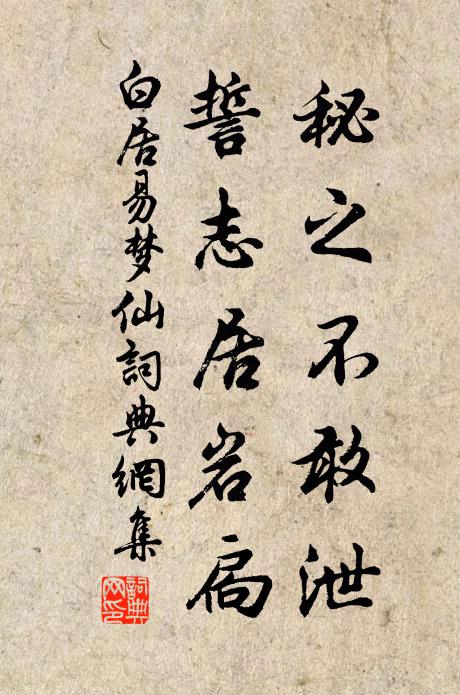 秘之不敢泄
誓志居岩扃
白居易梦仙詞典網集
詞典
网印